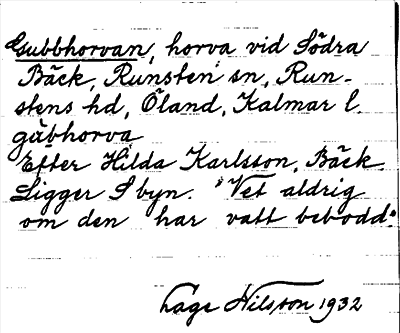 Gubbhorvan, horva vid Södra
Bäck, Runsten sn, Run-
stens hd, Öland, Kalmar l.
gubhorva
Efter Hilda Karlsson, Bäck.
Ligger S byn. "Vet aldrig
om den har vatt bebodd".
Lage Nilsson 1932